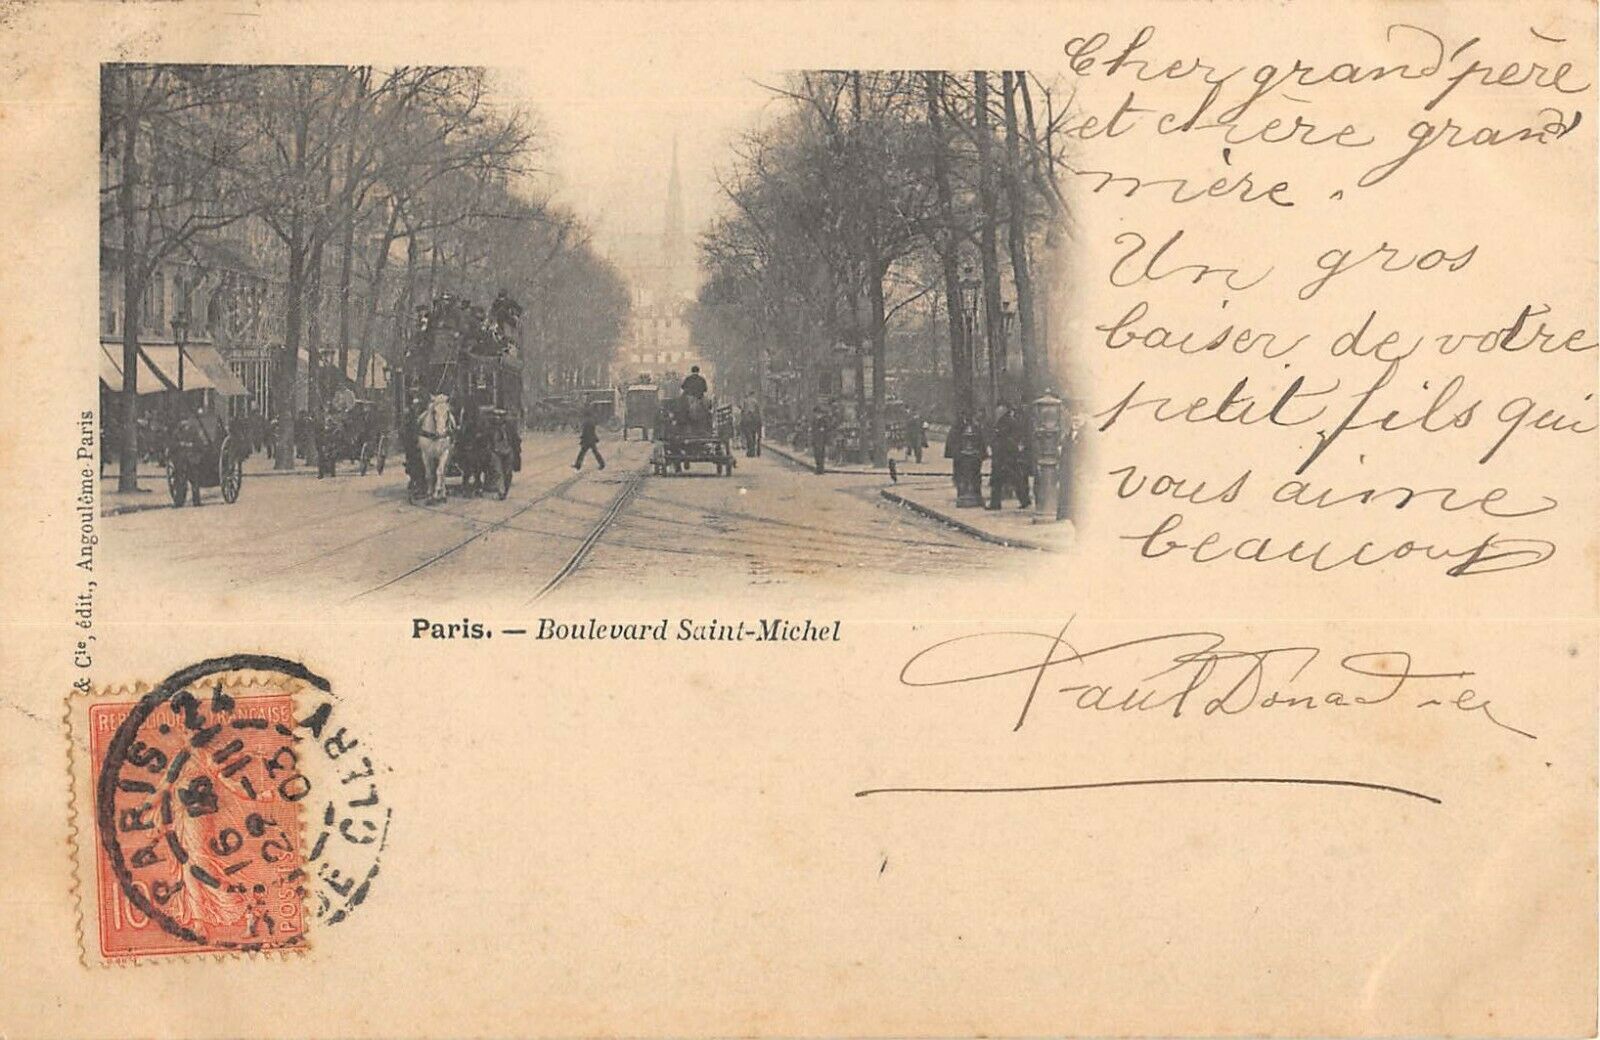 Cher grand'père
et chère grand'
mère.
Un gros
baiser de votre
petit fils qui
vous aime
beaucoup
Paul Donadieu
Paris. — Boulevard Saint-Michel
& Cie, édit., Angoulême-Paris
REPUBLIQUE FRANÇAISE
10
POSTES
PARIS. 24
RUE CLERY
16
22 -11
03